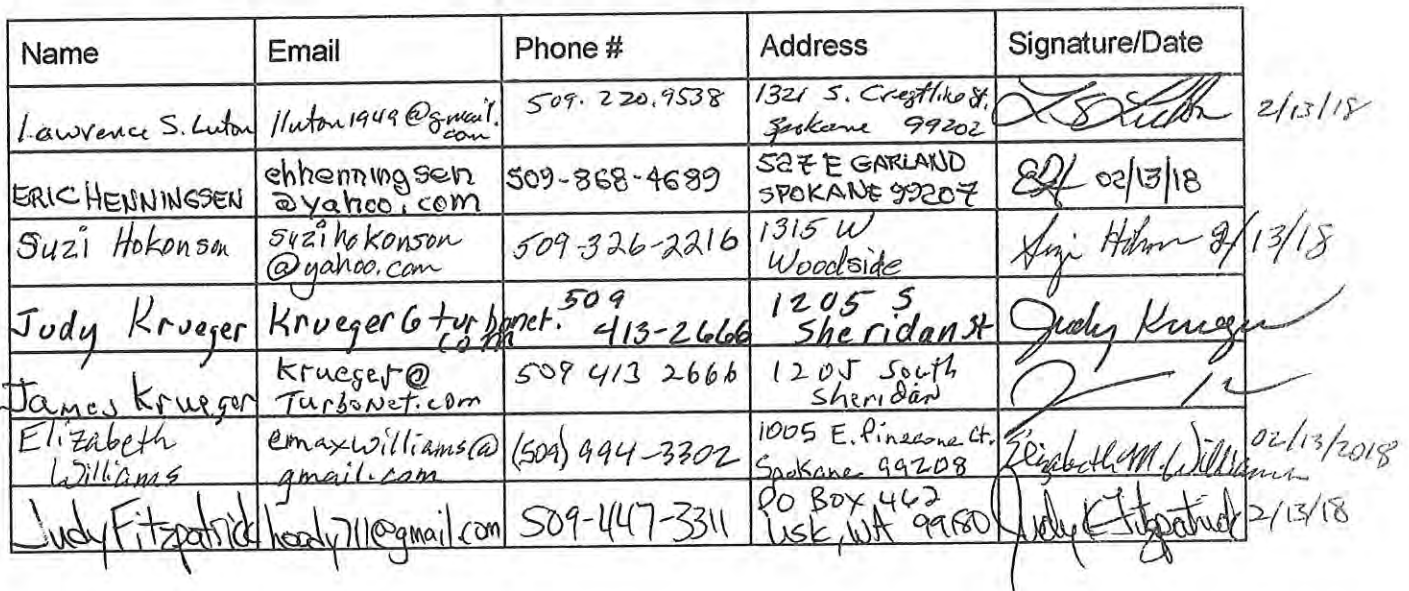 Name Email Phone # Address Signature/Date
Lawrence S. Luton lluton1949@gmail.com 509.220.9538 1321 S. St. Spokane 99202 2/13/18
ERIC HENNINGSEN ehhenningsen@yahoo.com 509-868-4689 527 E GARLAND SPOKANE 99207 02/13/18
Suzi Hokonson suzihokonson@yahoo.com 509-326-2216 1315 W Woodside 2/13/18
Judy Krueger Krueger@turbonet.com 509 413-2666 1205 S Sheridan St Judy Krueger
James Krueger Krueger@TurboNet.com 509 413 2666 1205 South Sheridan
Elizabeth Williams emaxwilliams@gmail.com (509) 994-3302 1005 E. Pinecone Ct. Spokane 99208 Elizabeth M. Williams 02/13/2018
Judy Fitzpatrick hoody711@gmail.com 509-447-3311 PO Box 462 Usk, WA 99180 Judy E Fitzpatrick 2/13/18